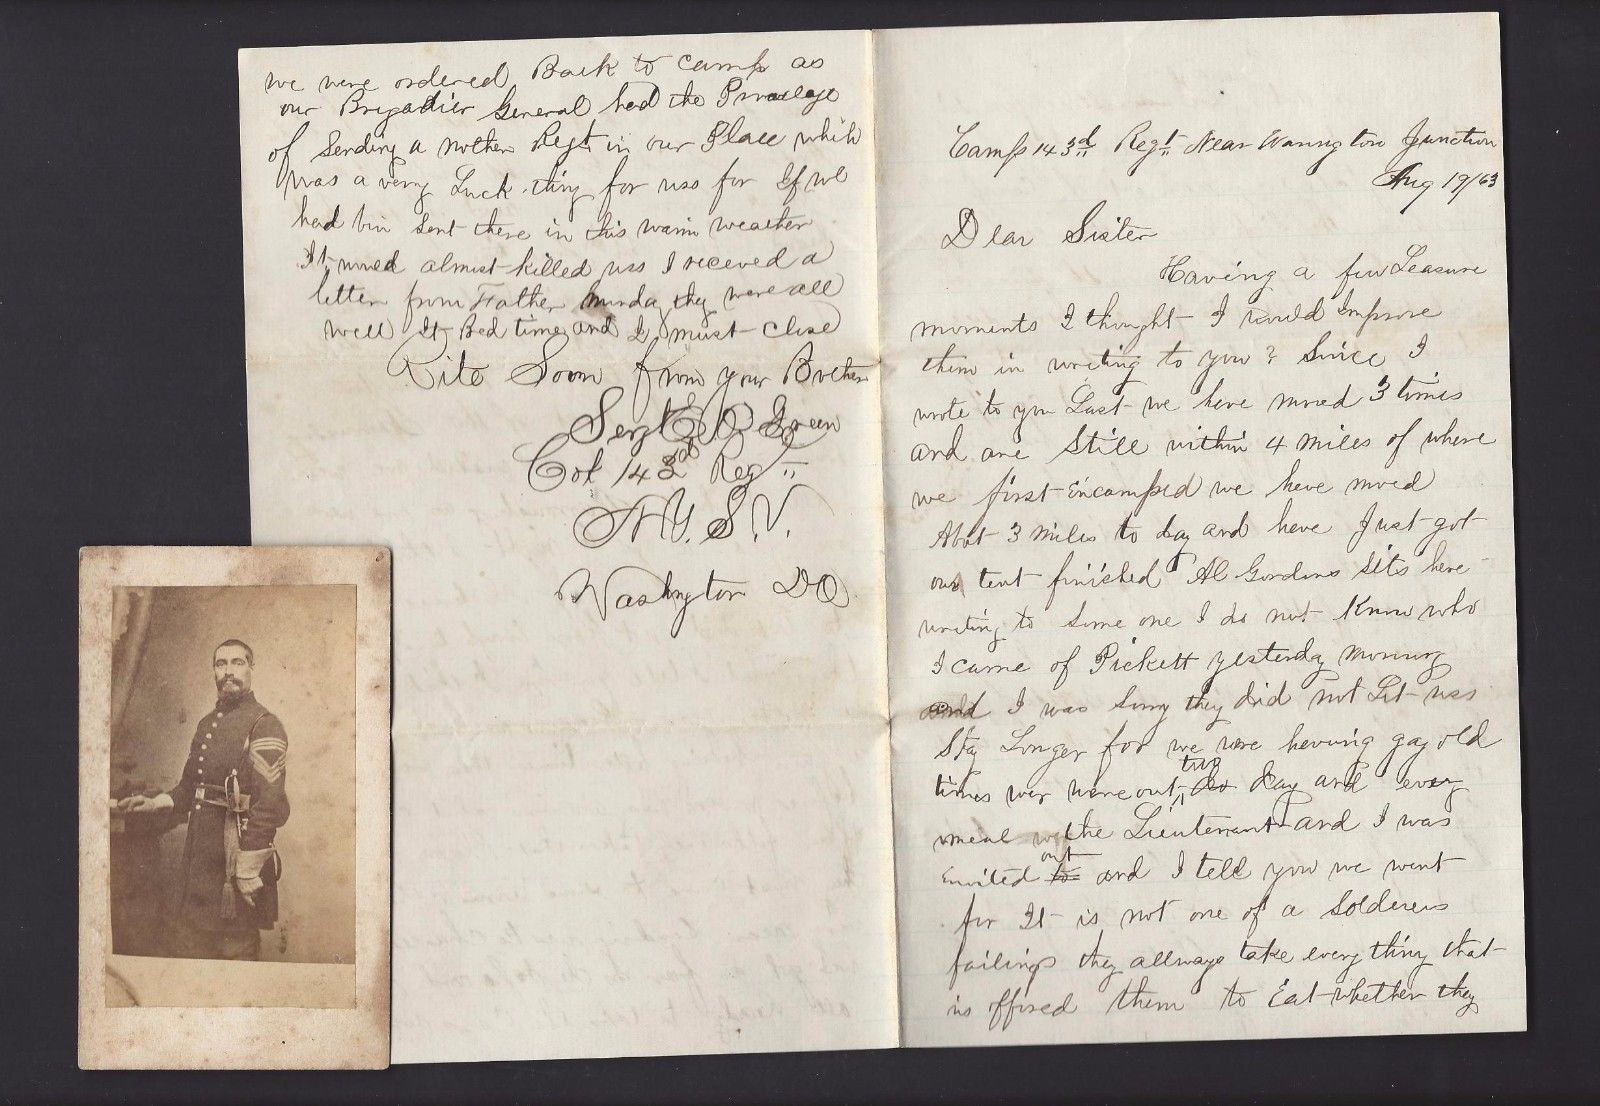 Camp 143d Regt Near Warrington Junction
Aug 19/63
Dear Sister
Having a few Leasure
moments I thought I would Improve
them in writing to you Since I
wrote to you Last we have moved 3 times
and are Still within 4 miles of where
we first Encamped we have moved
Abot 3 miles to day and have Just got
our tent finished Al Gordons sits here
writing to some one I do not Know who
I came of Pickett yesterday morning
and I was Sorry they did not Let uss
Stay Longer for we were heving gay old
times we were out two day and every
meal the Lieutenant and I was
Envited out and I tell you we went
for It is not one of a Solderers
failings they allways take every thing that
is offired them to Eat whether they
we were ordered Back to camp as
our Brigadier General had the
of Sending a nother Regt in our Place which
was a very Luck thing for uss for If we
had bin sent there in this warm weather
It wured almost killed uss I receved a
letter from Father they were all
well It Bed time and I must close
Rite Soon from your Brother
Sergt E Green
Col 143d Regt
N.Y.S.V.
Washington DC